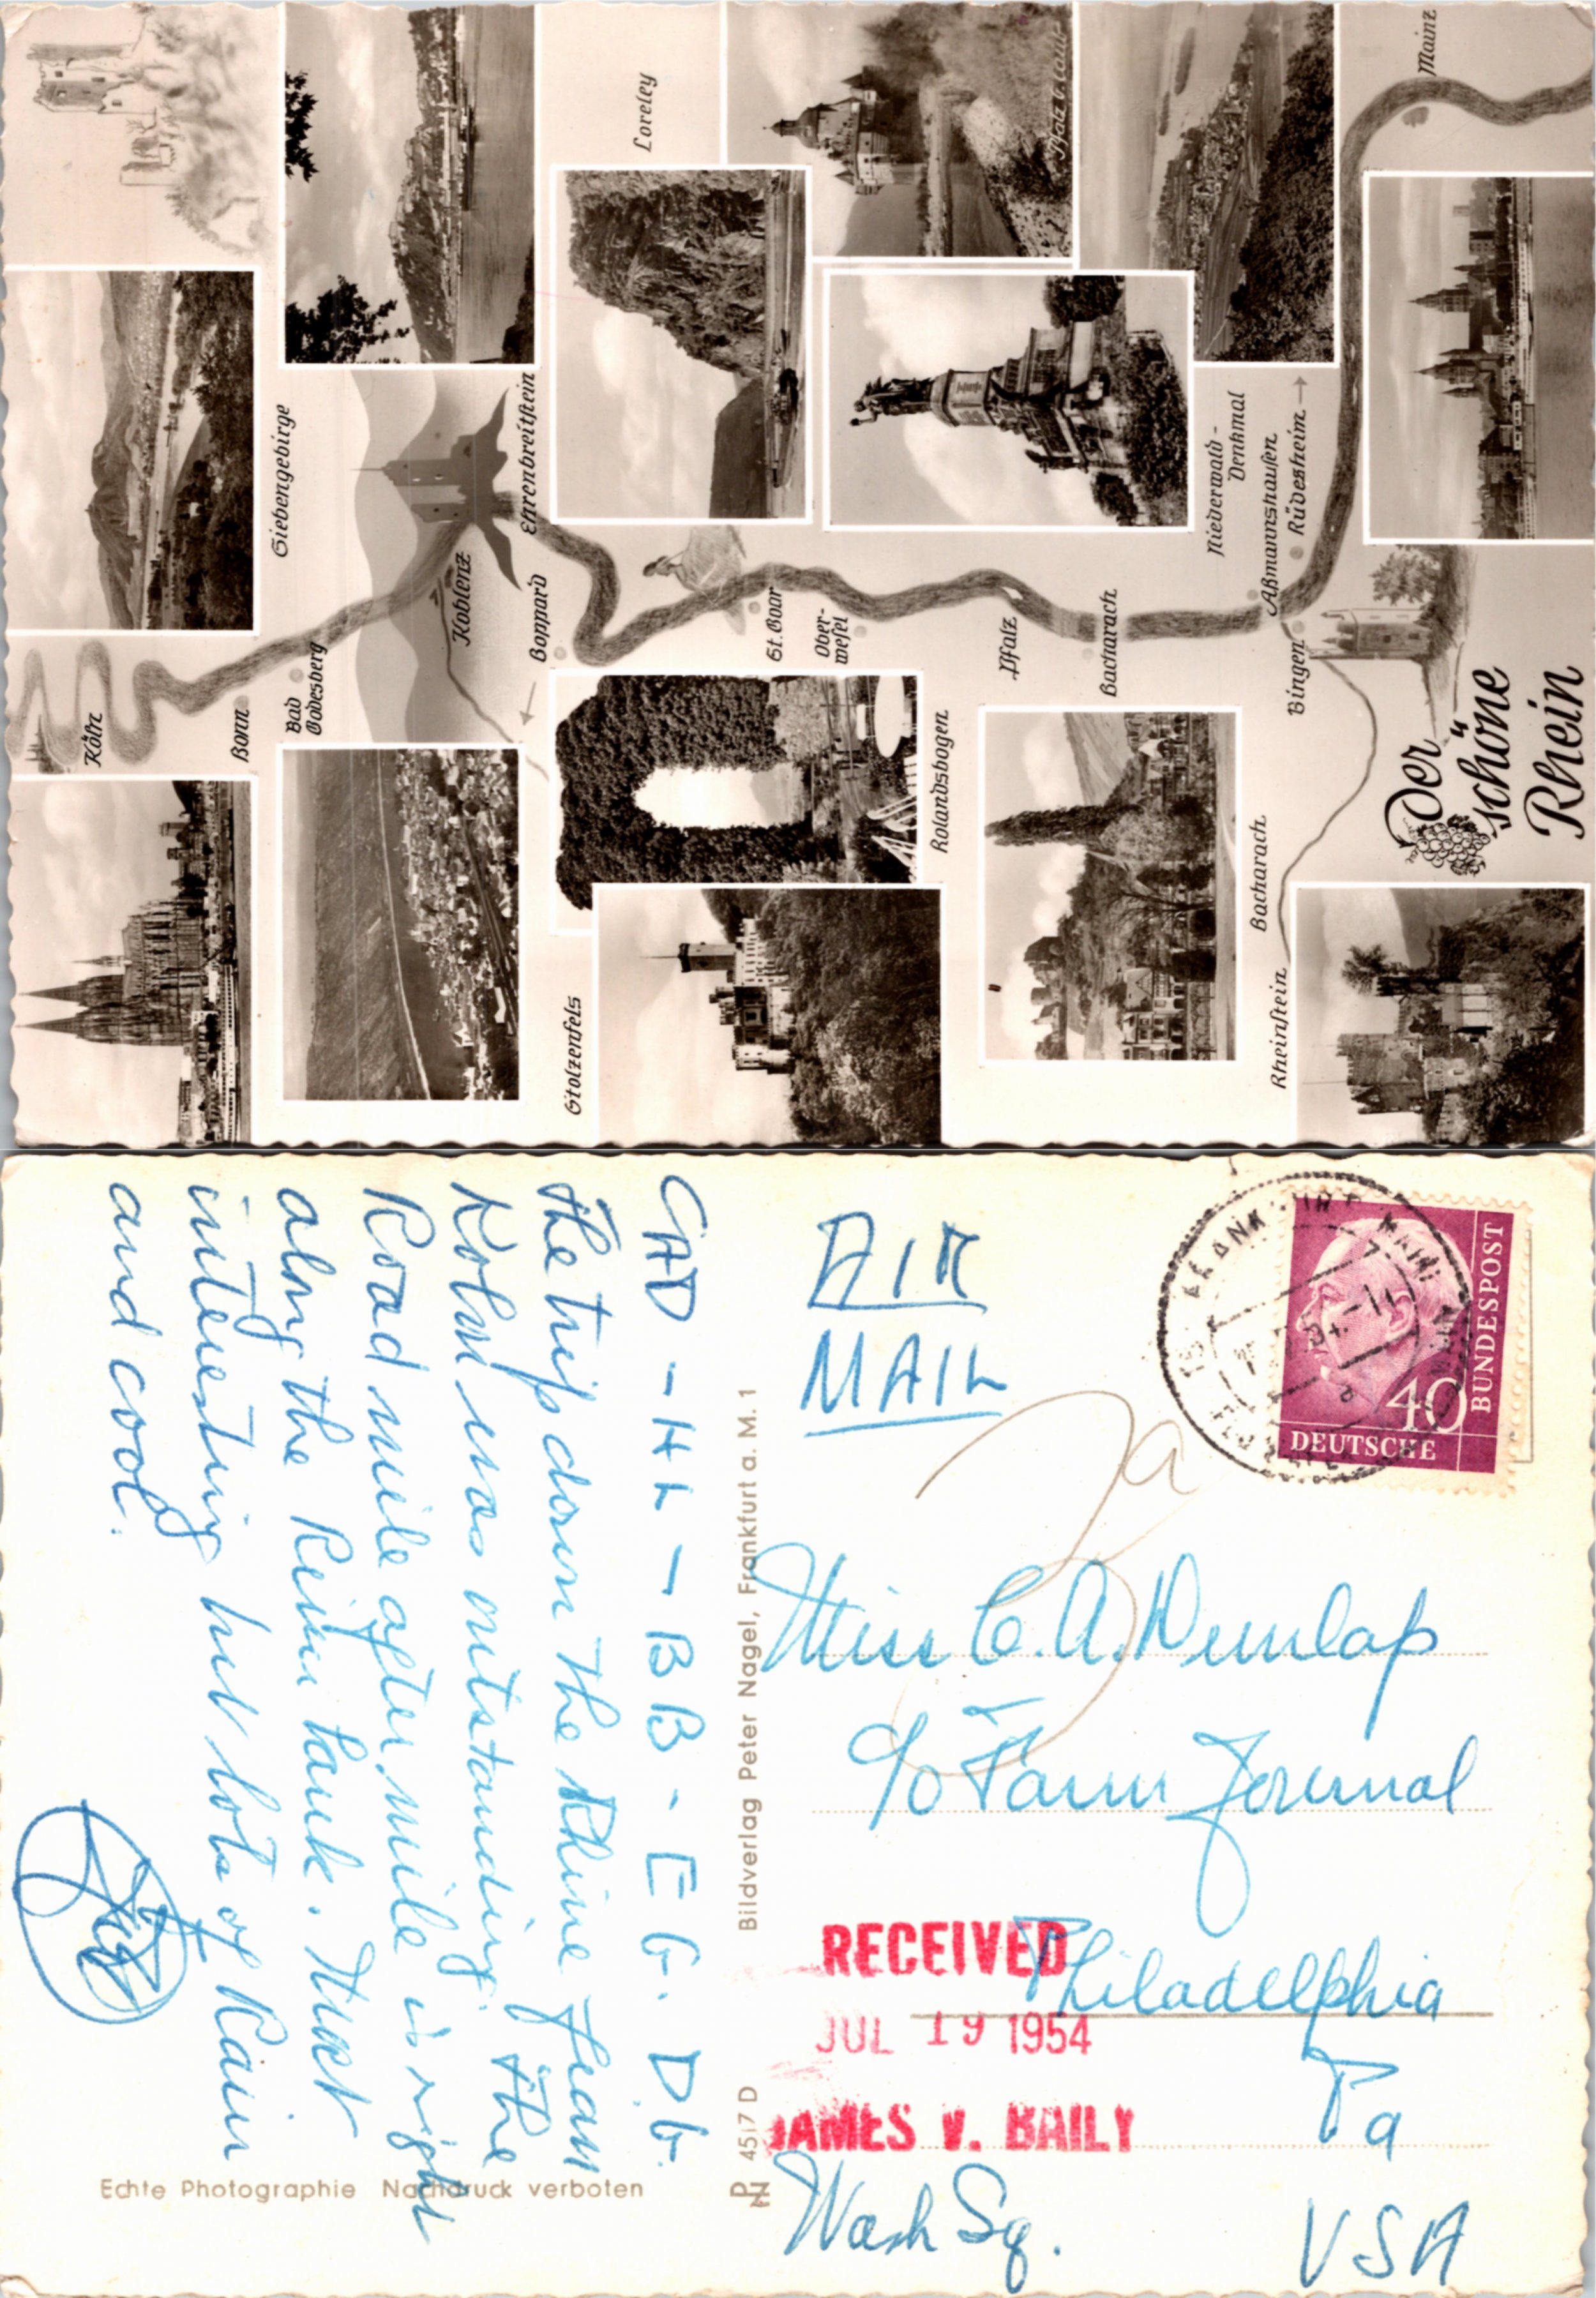 Der
schöne
Rhein
Köln
Bonn
Bad
Godesberg
Siebengebirge
Koblenz
Ehrenbreitstein
Boppard
Loreley
St. Goar
Ober-
wesel
Pfalz
Bacharach
Niederwald-
Denkmal
Aßmannshausen
Rüdesheim
Bingen
Mainz
Stolzenfels
Rolandsbogen
Bacharach
Rheinstein
CAD - HL - BB - EG. DG.
The trip down the Rhine from
Koln was outstanding. The
Road mile after mile is right
along the Rhine bank. Most
interesting but lots of Rain
and cool.
Echte Photographie Nachdruck verboten
Bildverlag Peter Nagel, Frankfurt a. M. 1
4517 D
AIR
MAIL
40
DEUTSCHE
BUNDESPOST
Miss C. A. Dunlap
c/o Farm Journal
Philadelphia
Pa
Wash Sq.
USA
RECEIVED
JUL 19 1954
JAMES V. BAILY